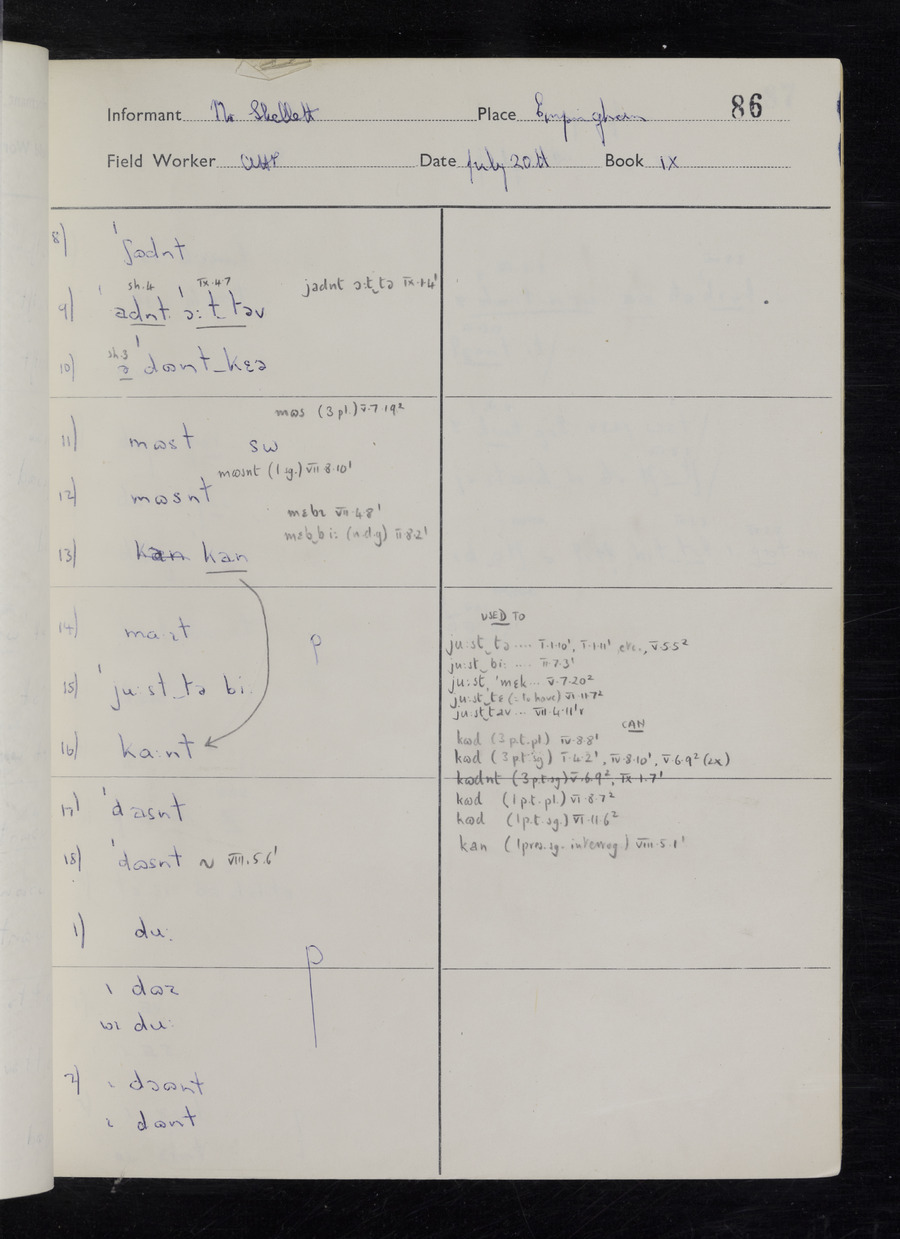 Informant Mr Shellett Place Empingham 86
Field Worker Date July 20th Book IX
8) 'ʃɷdnt
sh.4 IX.4.7 jadnt ɔ:t_tə IX.1.4¹
9) 'adnt 'ɔ:t təv
sh.3
10) ə 'dɷnt_kɛə
mɷs (3 pl.) V.7.19²
11) mɷst sɷ
mɷsnt (1 sg.) VII.8.10¹
12) mɷsnt
mɛbɪ VII.4.8¹
mɛb,bi: (n.d.g) II.8.2¹
13) kan kan
14) ma:ɪt p
15) 'ju:st_tə bi:
16) ka:nt
17) 'dasnt
18) 'dɷsnt ~ VIII.5.6¹
1) du: p
ɪ dɷz
wɪ du:
2) ɪ dɔɷnt
ɪ dɷnt
USED TO
ju:st_tə .... I.1.10¹, I.1.11¹, etc., V.5.5²
ju:st_bi: .... II.7.3¹
ju:st, 'mɛk ... V.7.20²
ju:st_tɛ (= to have) VI.11.7²
ju:st tav ... VII.4.11¹r
CAN
kɷd (3 p.t. pl.) IV.8.8¹
kɷd (3 p.t. sg.) I.4.2¹, IV.8.10¹, V.6.9² (2x)
kɷdnt (3 p.t. sg.) V.6.9², IX.1.7¹
kɷd (1 p.t. pl.) VI.8.7²
kɷd (1 p.t. sg.) VI.11.6²
kan (1 pres. sg. interrog.) VIII.5.1¹